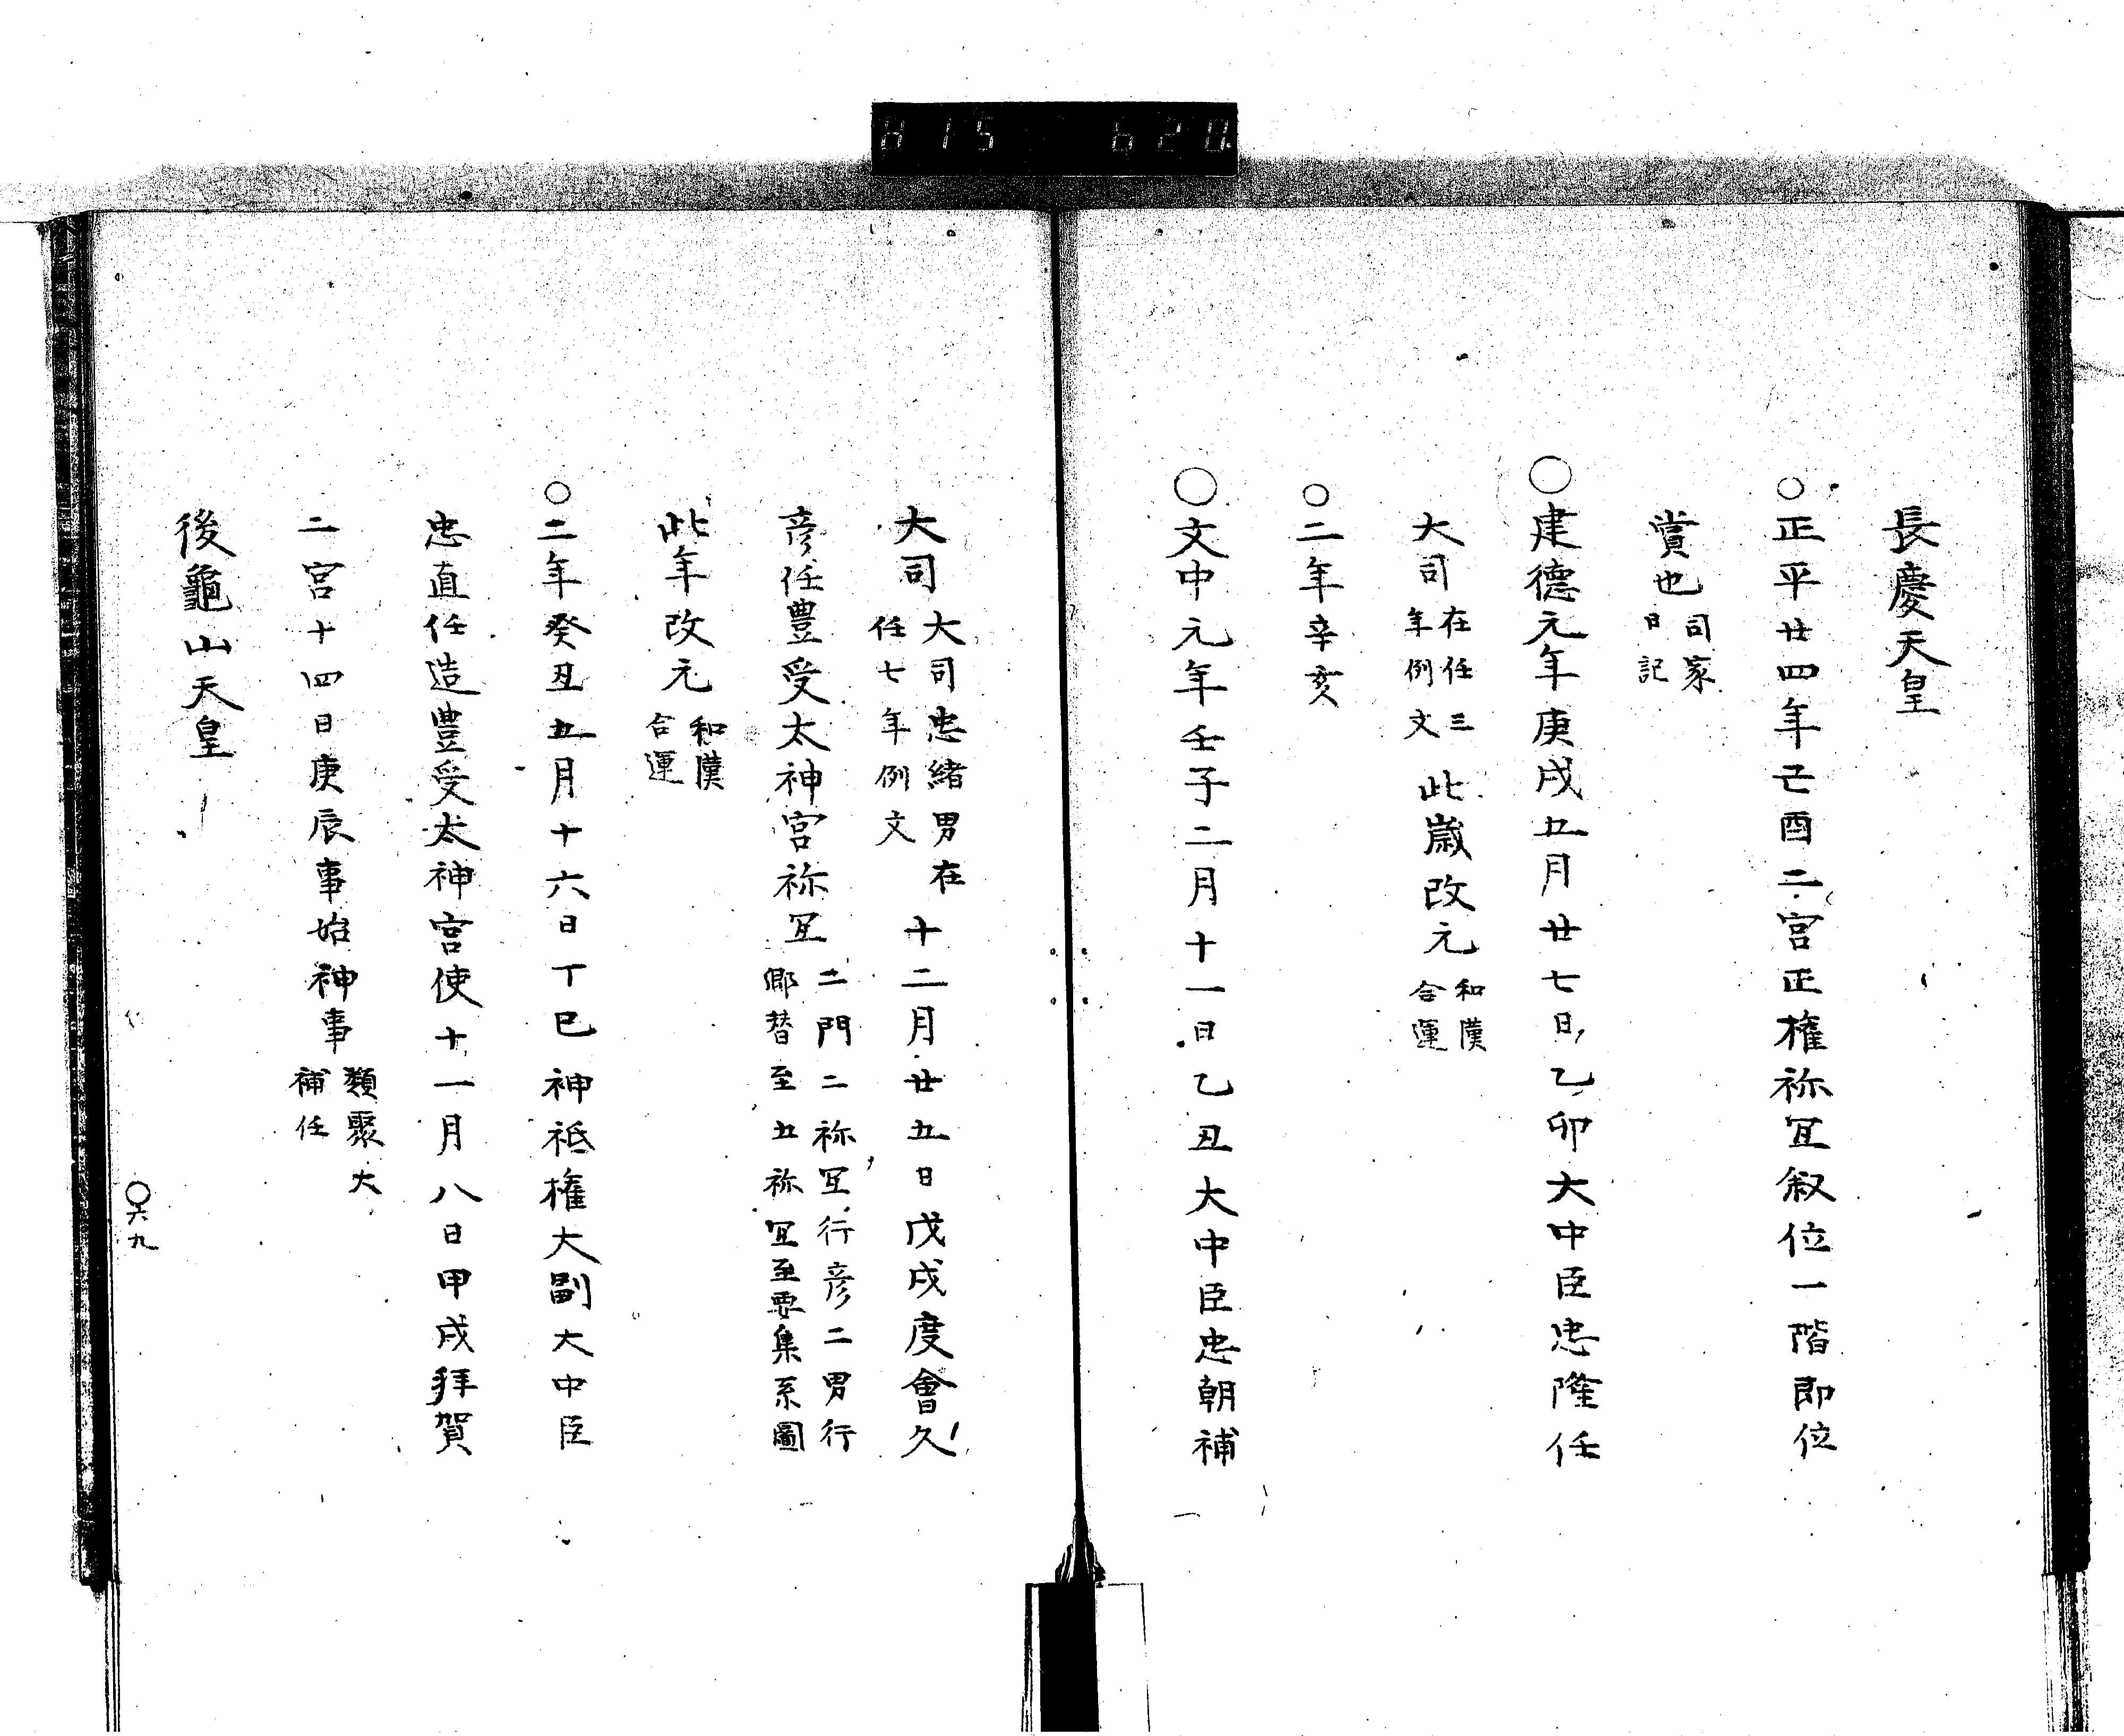 815 620
長慶天皇
○正平廿四年己酉二宮正権祢冝叙位一階即位
賞也 司家日記
○建德元年庚戌五月廿七日乙卯大中臣忠隆任
大司 在任三年例文 此歳改元 和漢合運
○二年辛亥
○文中元年壬子二月十一日乙丑大中臣忠朝補
大司 大司忠緒男在任七年例文 十二月廿五日戊戌度會久
彦任豊受太神宮祢冝 二門二祢冝行彦二男行郷替至五祢冝至要集系圖
此年改元 和漢合運
○二年癸丑五月十六日丁巳神祇権大副大中臣
忠直任造豊受太神宮使十一月八日甲戌拜賀
二宮十四日庚辰事始神事 類聚大補任
後龜山天皇
○六九